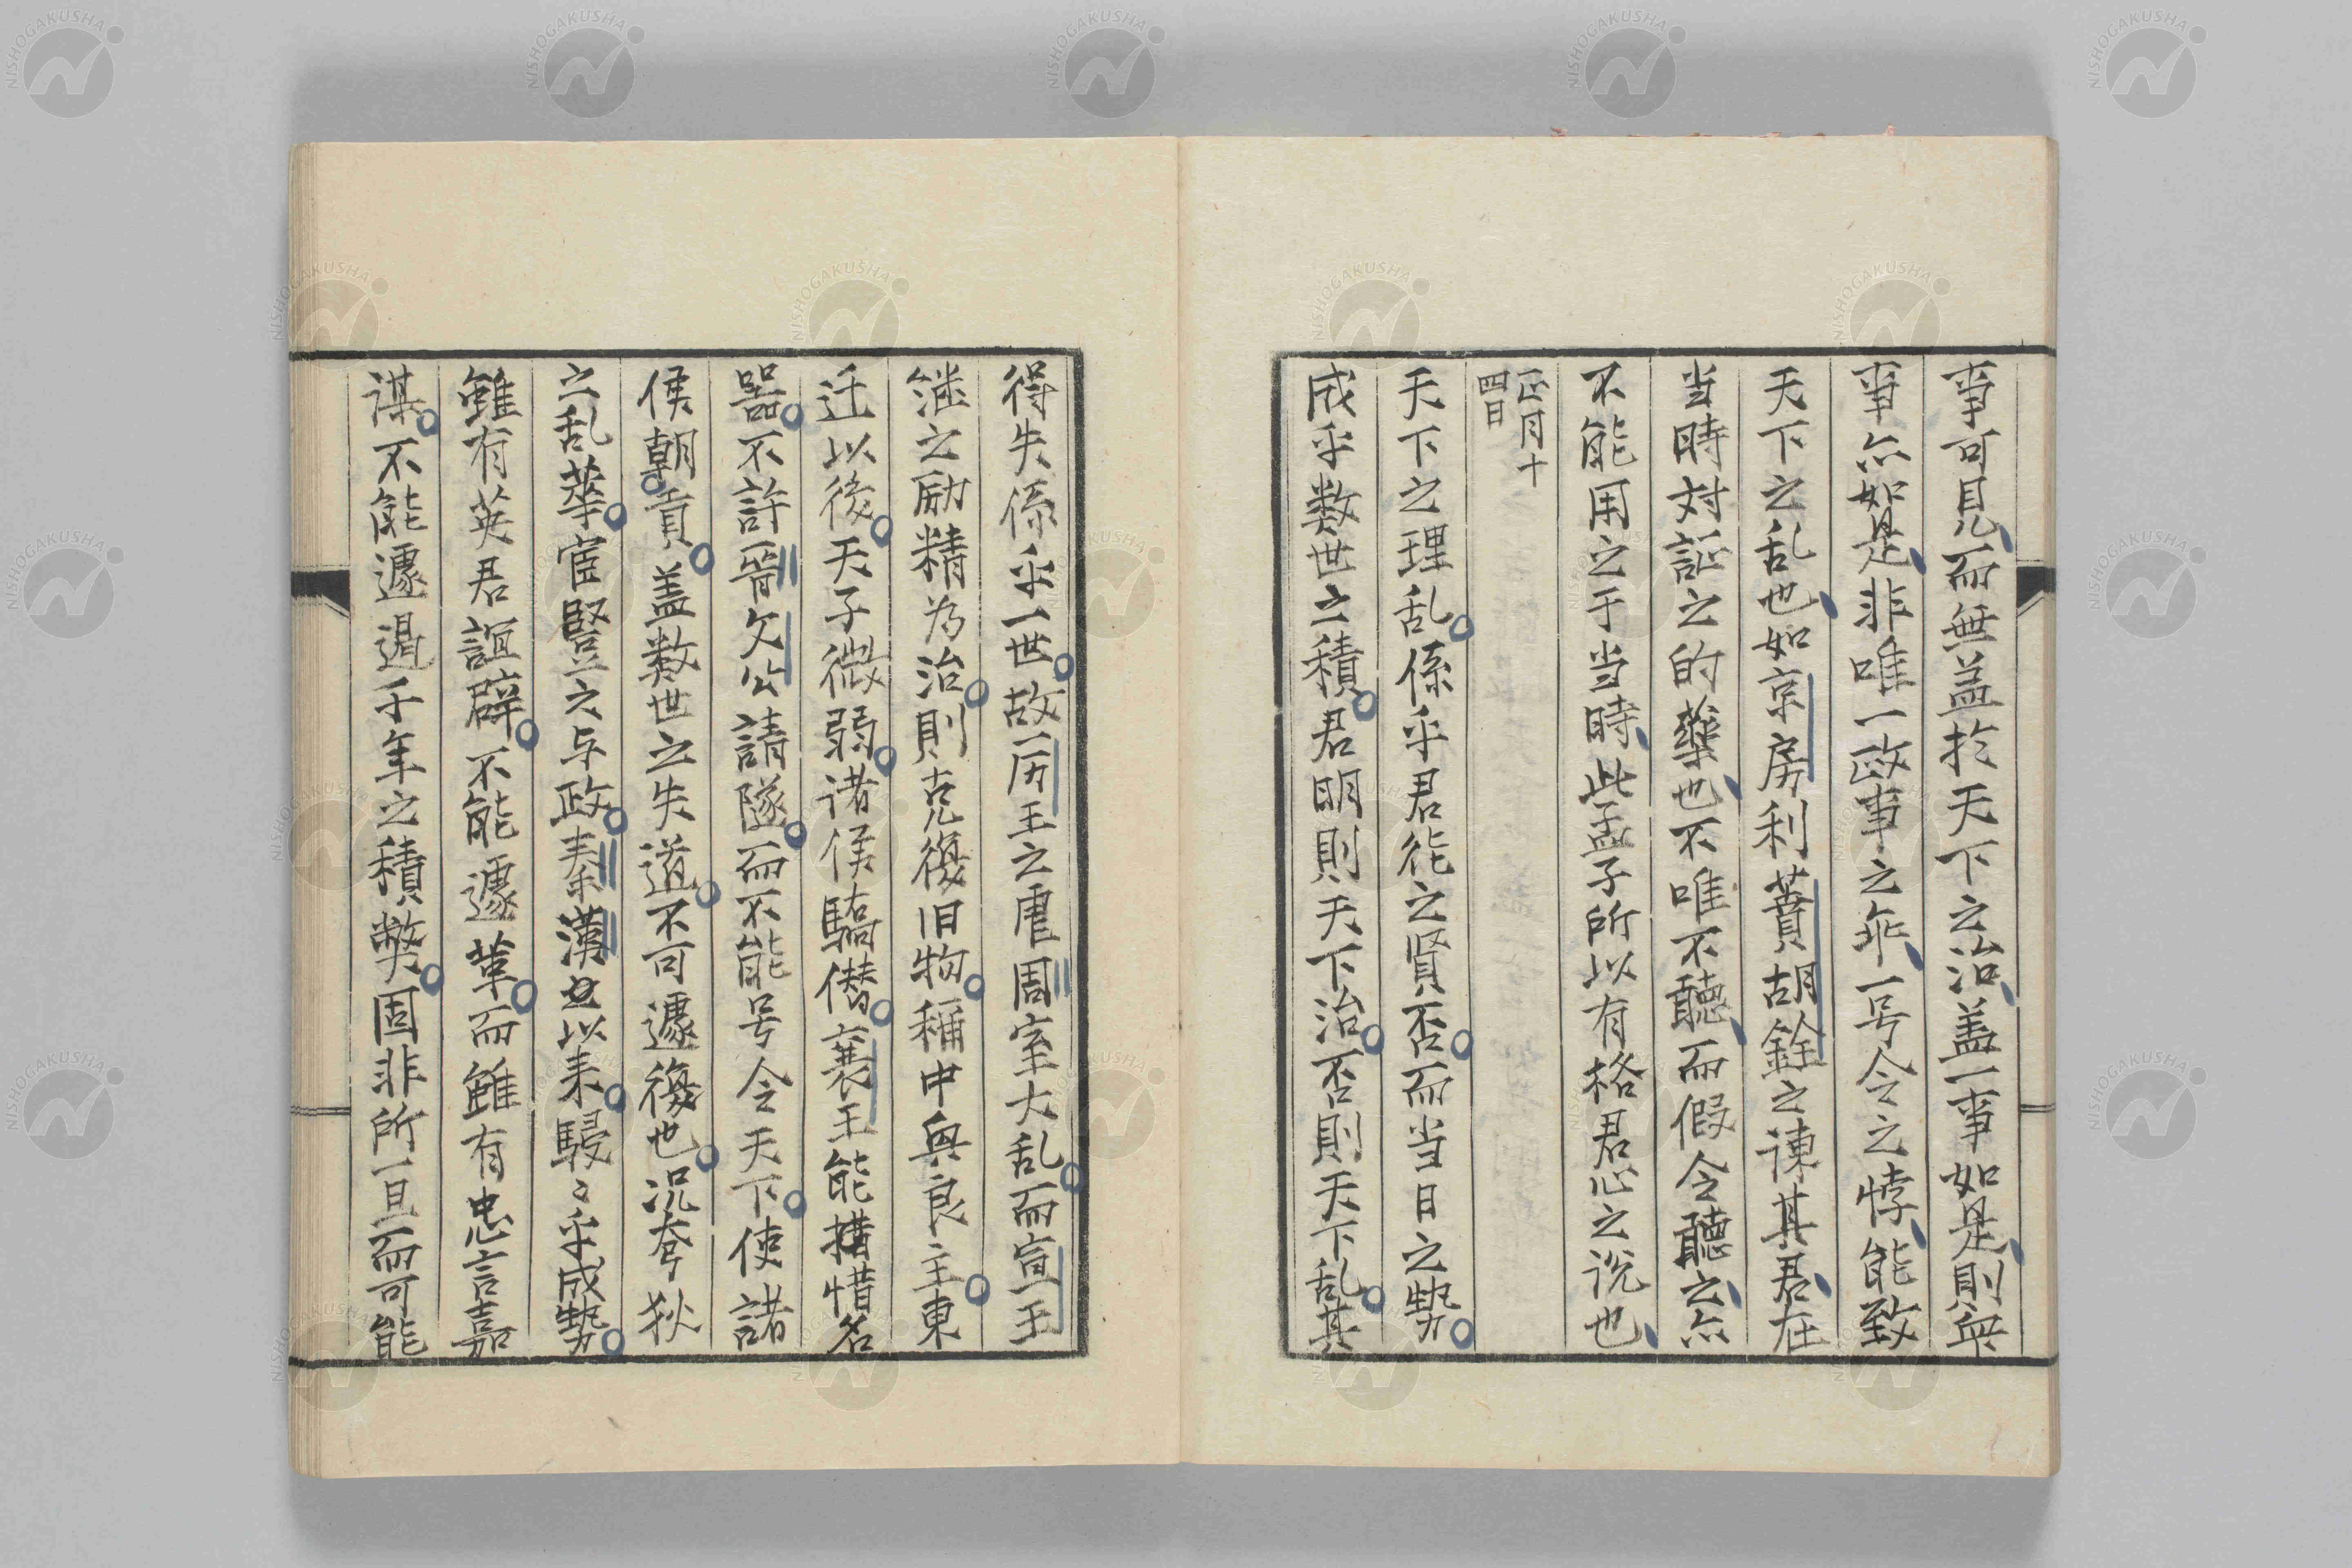 事可見而無益於天下之治盖一事如是則無
事亦如是非唯一政事之乖一号令之悖能致
天下之乱也如京房利蕡胡銓之諌其君在
当時対証之的藥也不唯不聴而假令聴之亦
不能用之于当時此孟子所以有格君心之説也
正月十
四日
天下之理乱係乎君徳之賢否而当日之勢
成乎数世之積君明則天下治否則天下乱其
得失係乎一世故厉王之虐周室大乱而宣王
継之励精為治則克復旧物稱中興良主東
迁以後天子微弱诸侯驕僭襄王能措惜名
器不許晉文公請隧而不能号令天下使諸
侯朝貢盖数世之失道不可遽復也况夸狄
之乱華宦豎之与政秦漢以来駸〻乎成勢
雖有英君誼辟不能遽革而雖有忠言嘉
謀不能遽遏千年之積弊固非所一旦而可能
NISHOGAKUSHA